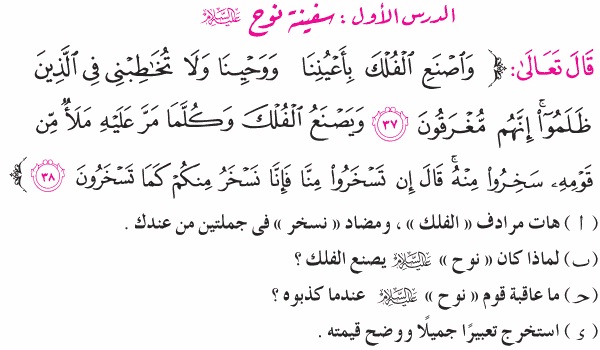 الدرس الأول : سفينة نوح عليه السلام
قَالَ تَعَالَىٰ: ﴿ وَٱصْنَعِ ٱلْفُلْكَ بِأَعْيُنِنَا وَوَحْيِنَا وَلَا تُخَٰطِبْنِى فِى ٱلَّذِينَ
ظَلَمُوٓا۟ ۚ إِنَّهُم مُّغْرَقُونَ ٣٧ وَيَصْنَعُ ٱلْفُلْكَ وَكُلَّمَا مَرَّ عَلَيْهِ مَلَأٌ مِّن
قَوْمِهِۦ سَخِرُوا۟ مِنْهُ ۚ قَالَ إِن تَسْخَرُوا۟ مِنَّا فَإِنَّا نَسْخَرُ مِنكُمْ كَمَا تَسْخَرُونَ ٣٨ ﴾
( أ ) هات مرادف « الفلك » ، ومضاد « نسخر » فى جملتين من عندك .
(ب) لماذا كان « نوح » عليه السلام يصنع الفلك ؟
(جـ) ما عاقبة قوم « نوح » عليه السلام عندما كذبوه ؟
(د) استخرج تعبيرًا جميلًا ووضح قيمته .